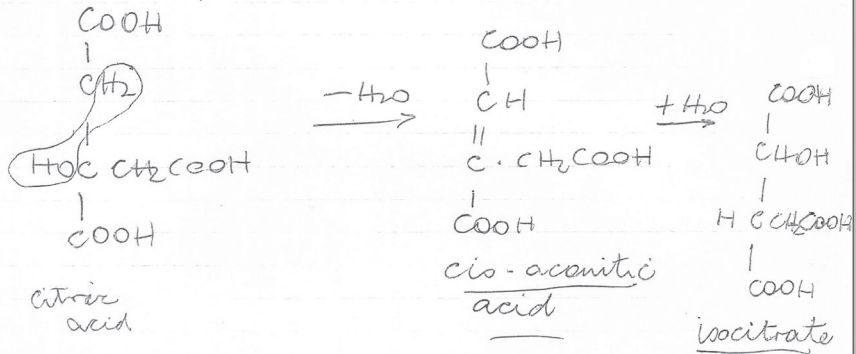 COOH
CH2
HOC CH2COOH
COOH
citric
acid
-H2O
COOH
CH
C · CH2COOH
COOH
cis-aconitic
acid
+H2O
COOH
CHOH
H C CH2COOH
COOH
isocitrate